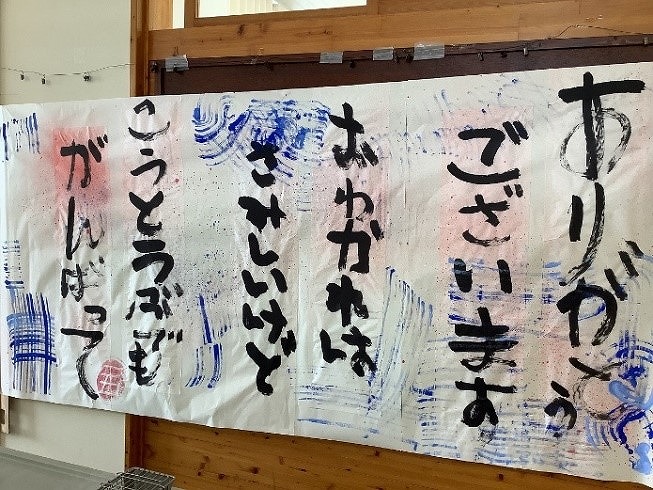 ありがとう
ございます
おわかれは
さみしいけど
こうとうぶでも
がんばって